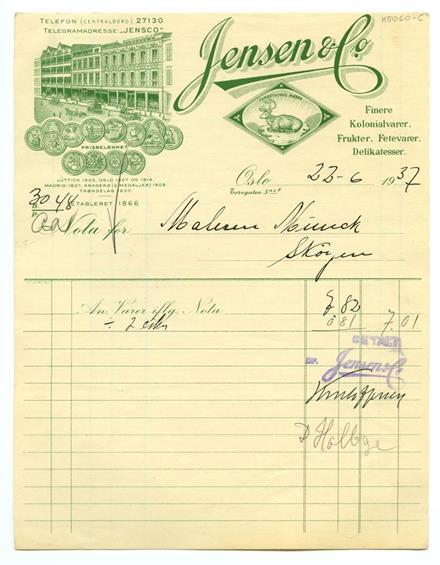 TELEFON (CENTRALBORD) 27130
TELEGRAMADRESSE: „JENSCO"
K5060-C
Jensen & Co.
FORRETNINGS MÆRKE
PRISBELØNNET
LÜTTICH 1905, OSLO 1907 OG 1914,
MADRID 1907, KRAGERØ (2 MEDALJER) 1909.
TRØNDELAG 1930.
ETABLERET 1866
Finere
Kolonialvarer,
Frukter, Fetevarer,
Delikatesser.
Oslo 22-6 1937
Torvgaten
3048
Nota for Maleren Munck
Skøyen
An Varer iflg. Nota 7 82
÷ 81 7.01
BETALT
Jensen & Co.